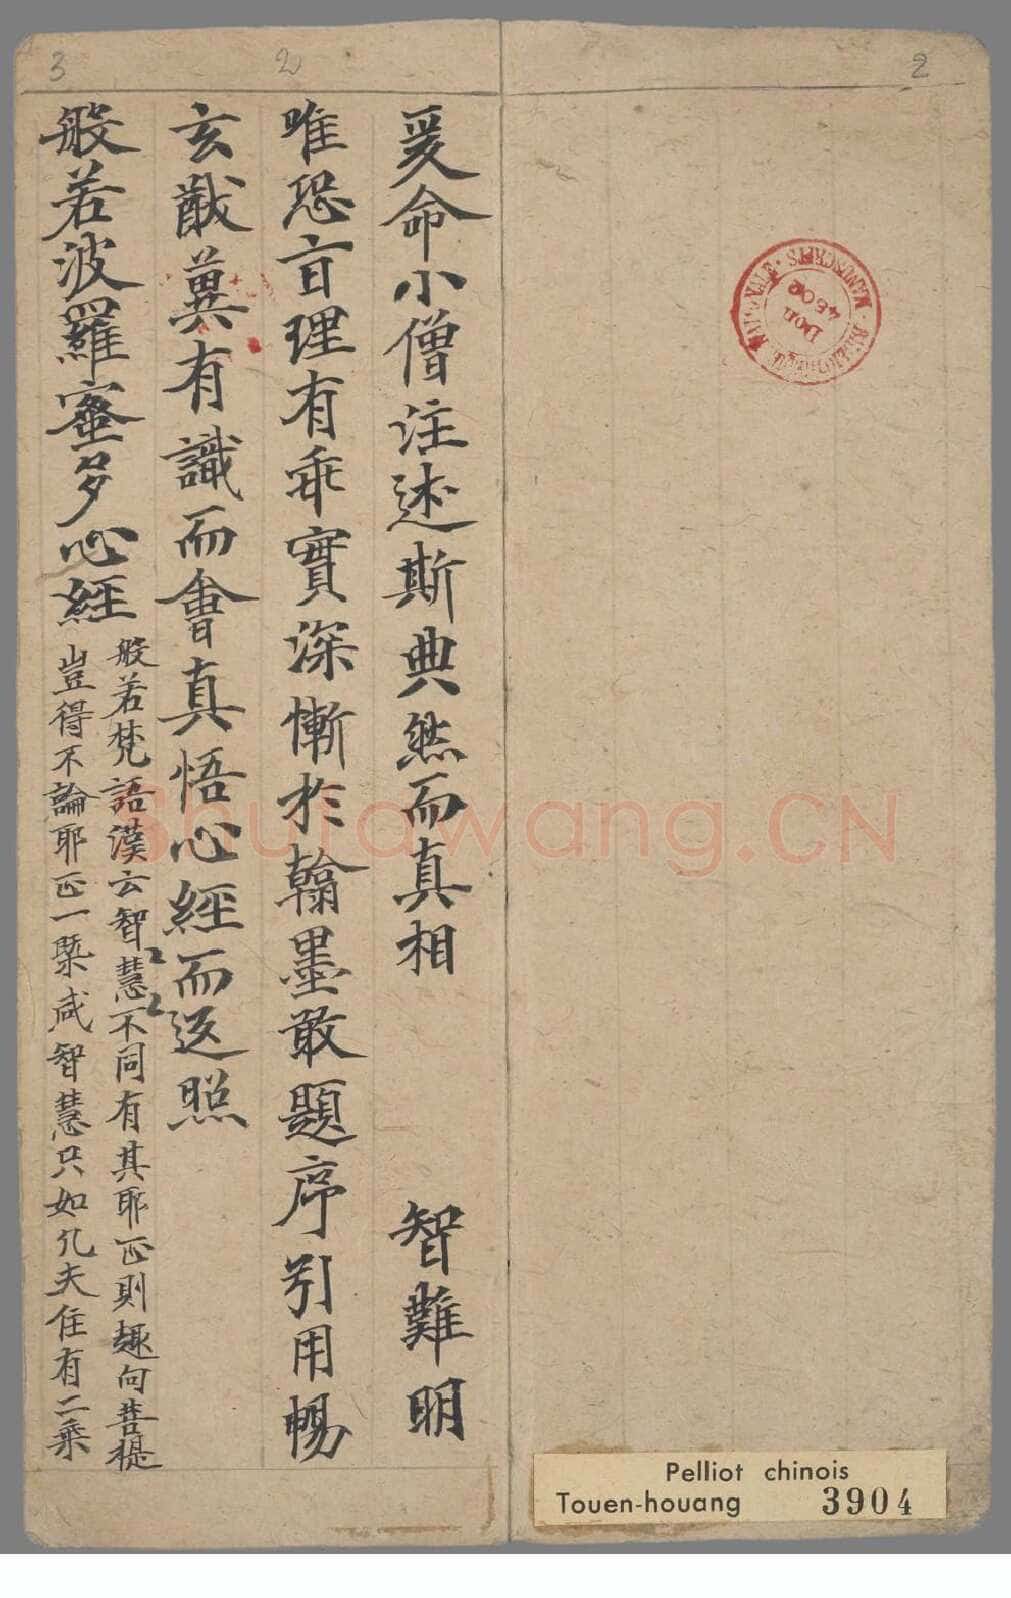 爰命小僧注述斯典然而真相 智難明
唯恐言理有乖實深慚於翰墨敢題序引用暢
玄猷冀有識而會真悟心經而返照
般若波羅蜜多心經
般若梵語漢云智慧〻〻不同有其耶正則趣向菩提
豈得不論耶正一槩咸智慧只如凢夫住有二乘
2
2
3
Don
4502
MANUSCRITS
Pelliot chinois
Touen-houang 3904
Shufawang.CN